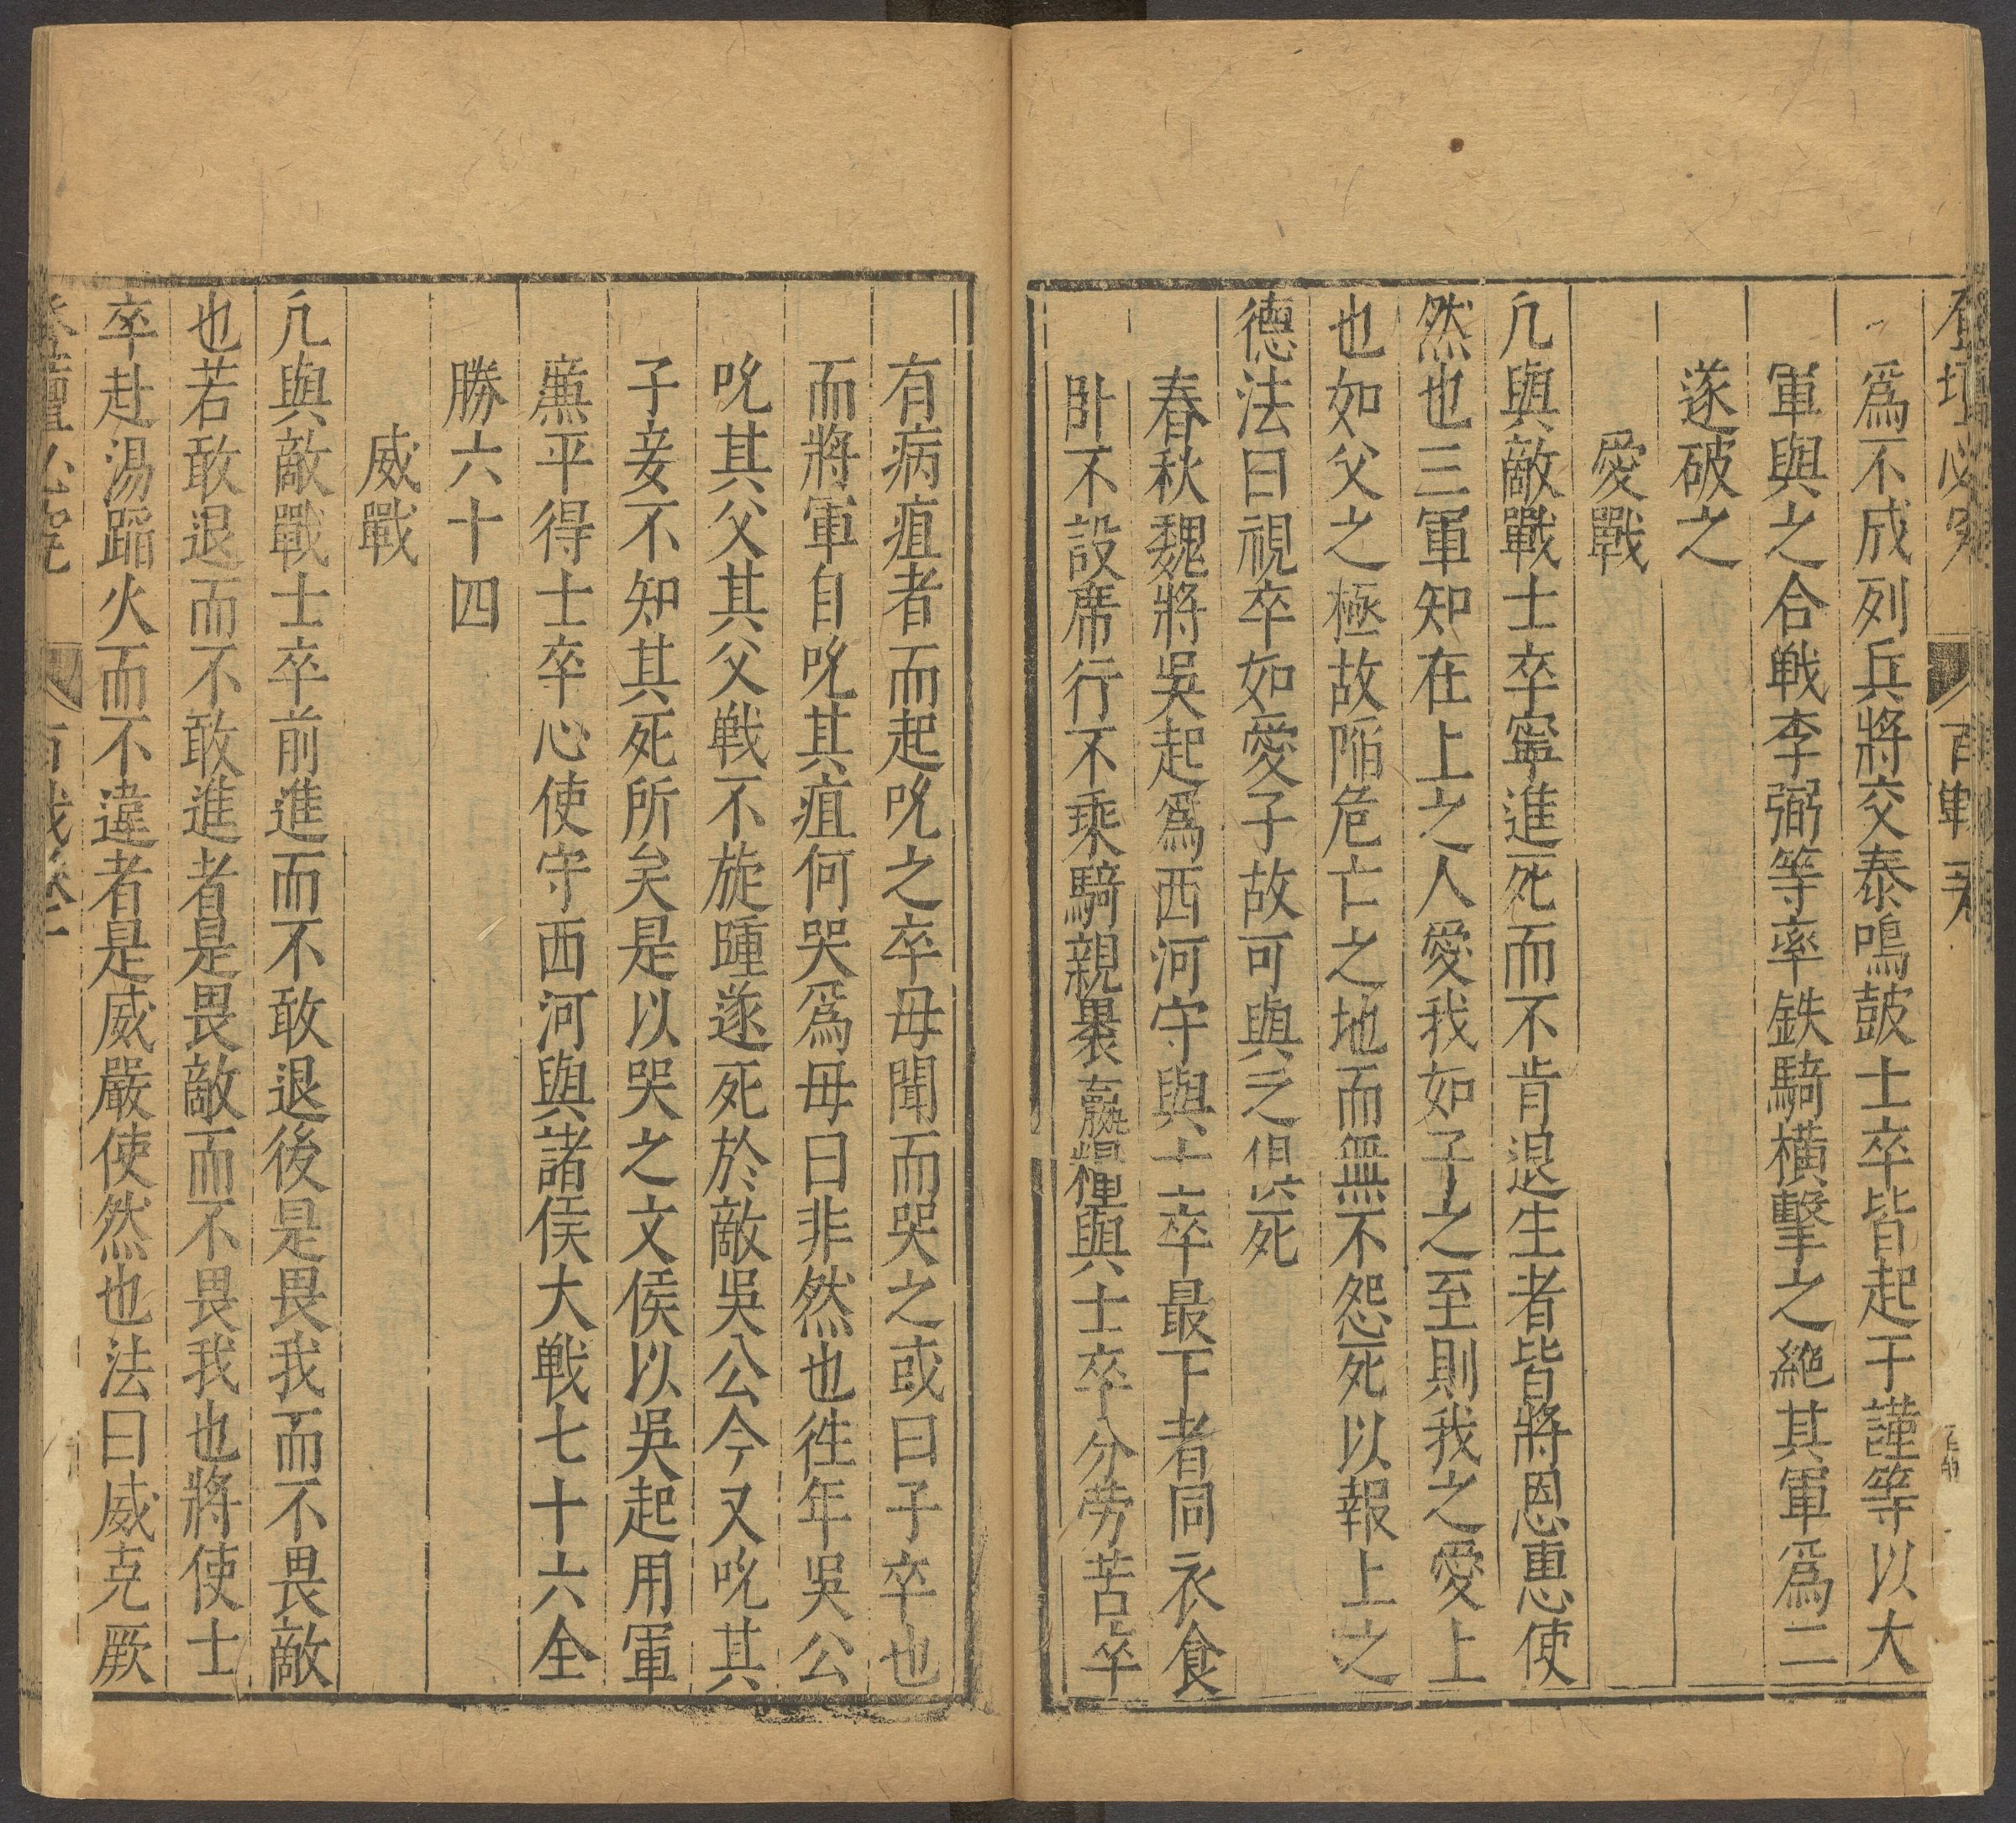 登壇必究 百戰卷
爲不成列兵將交泰鳴鼓士卒皆起于謹等以大
軍與之合戦李弼等率鉄騎横擊之絶其軍爲二
遂破之
愛戰
凢與敵戰士卒寧進死而不肯退生者皆將恩惠使
然也三軍知在上之人愛我如子之至則我之愛上
也如父之極故陥危亡之地而無不怨死以報上之
德法曰視卒如愛子故可與之俱死
春秋魏將吳起爲西河守與士卒最下者同衣食
卧不設席行不乘騎親裹嬴糧與士卒分劳苦卒
有病疽者而起吮之卒毋聞而哭之或曰子卒也
而將軍自吮其疽何哭爲毋曰非然也徃年吳公
吮其父其父戦不旋踵遂死於敵吳公今又吮其
子妾不知其死所矣是以哭之文侯以吳起用軍
廉平得士卒心使守西河與諸侯大戦七十六全
勝六十四
威戰
凢與敵戰士卒前進而不敢退後是畏我而不畏敵
也若敢退而不敢進者是畏敵而不畏我也將使士
卒赴湯蹈火而不違者是威嚴使然也法曰威克厥
登壇必究 百戰卷